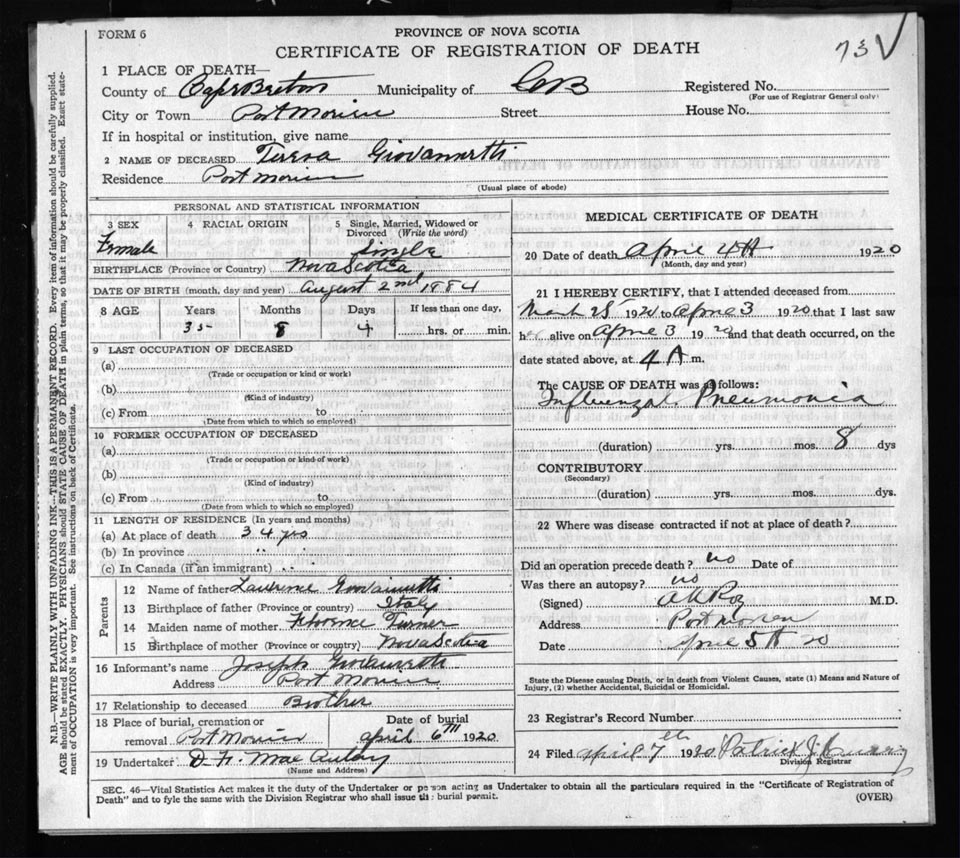 FORM 6
PROVINCE OF NOVA SCOTIA
CERTIFICATE OF REGISTRATION OF DEATH
73 V
1 PLACE OF DEATH—
County of Cape Breton Municipality of CB Registered No.
(For use of Registrar General only)
City or Town Port Morien Street House No.
If in hospital or institution, give name
2 NAME OF DECEASED Teresa Giovannetti
Residence Port Morien
(Usual place of abode)
PERSONAL AND STATISTICAL INFORMATION
3 SEX 4 RACIAL ORIGIN 5 Single, Married, Widowed or Divorced (Write the word)
Female Single
BIRTHPLACE (Province or Country) Nova Scotia
DATE OF BIRTH (month, day and year) August 2nd 1884
8 AGE Years Months Days If less than one day,
35 8 4 hrs. or min.
9 LAST OCCUPATION OF DECEASED
(a)
(Trade or occupation or kind or work)
(b)
(Kind of industry)
(c) From to
(Date from which to which so employed)
10 FORMER OCCUPATION OF DECEASED
(a)
(Trade or occupation or kind of work)
(b)
(Kind of industry)
(c) From to
(Date from which to which so employed)
11 LENGTH OF RESIDENCE (In years and months)
(a) At place of death 34 yrs
(b) In province " "
(c) In Canada (if an immigrant) " "
Parents
12 Name of father Laurence
13 Birthplace of father (Province or country) Italy
14 Maiden name of mother Florence Turner
15 Birthplace of mother (Province or country) Nova Scotia
16 Informant's name Joseph
Address Port Morien
17 Relationship to deceased Brother
18 Place of burial, cremation or Date of burial
removal Port Morien april 6TH 1920
19 Undertaker D. H. MacAulay
(Name and Address)
MEDICAL CERTIFICATE OF DEATH
20 Date of death April 4th 1920
(Month, day and year)
21 I HEREBY CERTIFY, that I attended deceased from
March 25 1920 to April 3 1920 that I last saw
h alive on April 3 1920 and that death occurred, on
date stated above, at 4 A m.
The CAUSE OF DEATH was as follows:
Influenzal Pneumonia
(duration) yrs. mos. 8 dys
CONTRIBUTORY
(Secondary)
(duration) yrs. mos. dys.
22 Where was disease contracted if not at place of death?
Did an operation precede death? no Date of
Was there an autopsy? no
(Signed) M.D.
Address Port Morien
Date April 5th 20
State the Disease causing Death, or in death from Violent Causes, state (1) Means and Nature of
Injury, (2) whether Accidental, Suicidal or Homicidal.
23 Registrar's Record Number
24 Filed April 7th 1920 Patrick J
Division Registrar
SEC. 46—Vital Statistics Act makes it the duty of the Undertaker or person acting as Undertaker to obtain all the particulars required in the "Certificate of Registration of
Death" and to fyle the same with the Division Registrar who shall issue the burial permit.
(OVER)
N.B.—WRITE PLAINLY WITH UNFADING INK—THIS IS A PERMANENT RECORD. Every item of information should be carefully supplied.
AGE should be stated EXACTLY. PHYSICIANS should STATE CAUSE OF DEATH in plain terms, so that it may be properly classified. Exact state-
ment of OCCUPATION is very important. See instructions on back of Certificate.